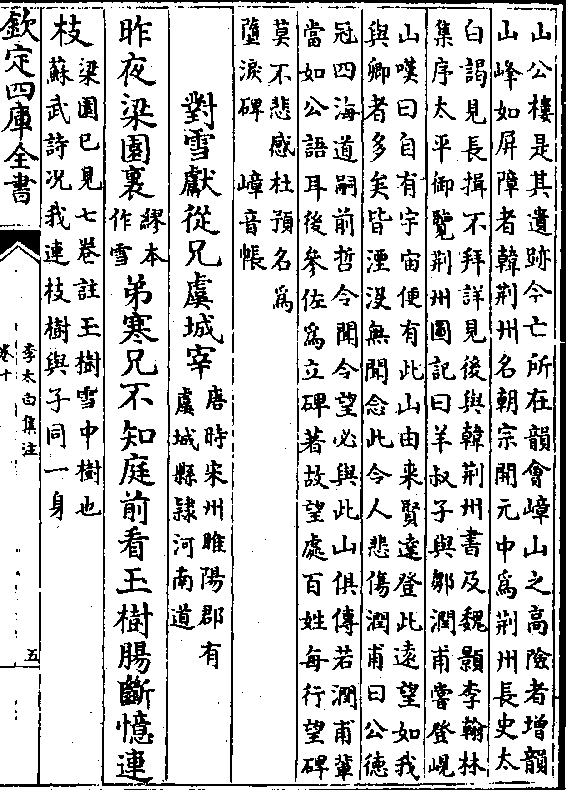 山公樓是其遺跡今亡所在韻會嶂山之高險者增韻
山峰如屏障者韓荆州名朝宗開元中為荆州長史太
白謁見長揖不拜詳見後與韓荆州書及魏顥李翰林
集序太平御覽荆州圖記曰羊叔子與鄒潤甫嘗登峴
山嘆曰自有宇宙便有此山由来賢達登此遠望如我
與卿者多矣皆湮没無聞念此令人悲傷潤甫曰公徳
冠四海道嗣前哲令聞令望必與此山俱傳若潤甫輩
當如公語耳後參佐為立碑著故望處百姓每行望碑
莫不悲感杜預名為
墮淚碑　嶂音帳
對雪獻從兄虞城宰
唐時宋州睢陽郡有
虞城縣隷河南道
昨夜梁園裏
繆本
作雪
弟寒兄不知庭前看玉樹腸斷憶連
枝
梁園已見七卷註玉樹雪中樹也
蘇武詩况我連枝樹與子同一身
欽定四庫全書
李太白集注
卷十
五